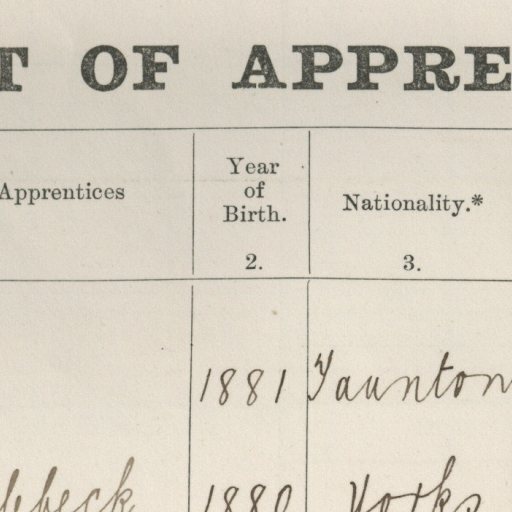 T OF APPRE
Apprentices
Year
of
Birth.
2.
Nationality.*
3.
1881 Taunton
1880 Yorks